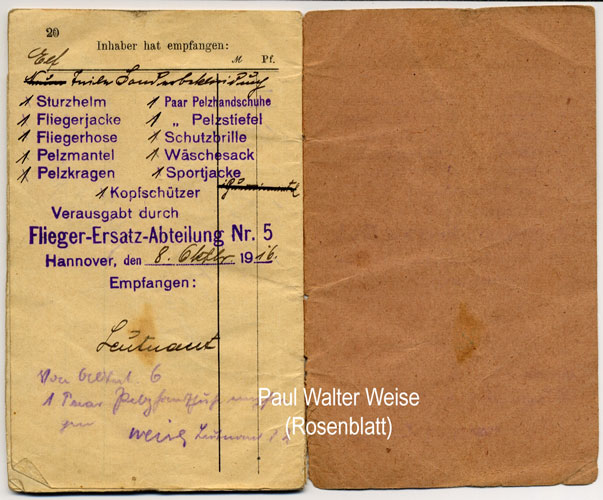 20
Inhaber hat empfangen:
M Pf.
Elf
Teile Sonderbekleidung
1 Sturzhelm 1 Paar Pelzhandschuhe
1 Fliegerjacke 1 „ Pelzstiefel
1 Fliegerhose 1 Schutzbrille
1 Pelzmantel 1 Wäschesack
1 Pelzkragen 1 Sportjacke
1 Kopfschützer
Verausgabt durch
Flieger-Ersatz-Abteilung Nr. 5
Hannover, den 8. Oktbr. 1916.
Empfangen:
Leutnant
Von
1 Paar
Weise Leutnant
Paul Walter Weise
(Rosenblatt)